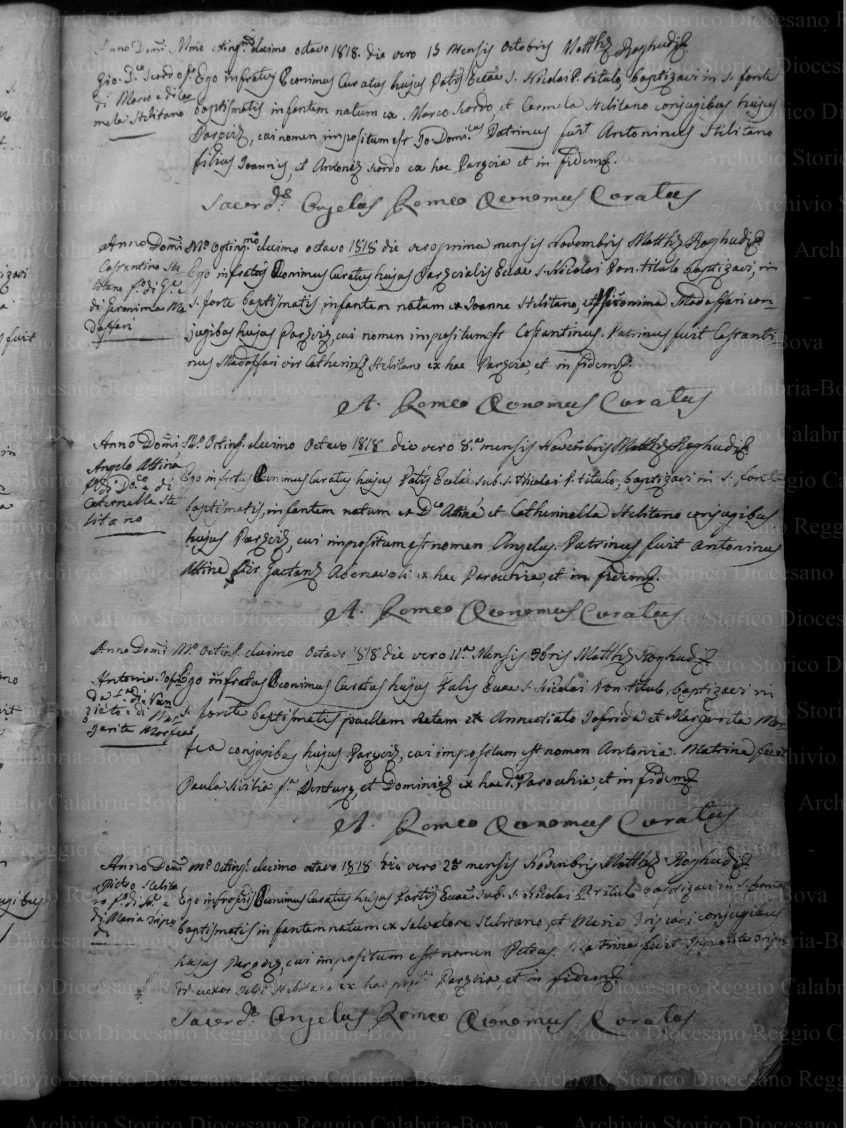 Anno Domi Mmo octing. decimo octavo 1818. die vero 15 Mensis Octobris Matthȩ Roghudii
Gio. Dco Scordo f. Ego infratus Œconimus Curatus hujus Palis Ecae s. Nicolai P. titulo, baptizavi in s. fonte
di Marco e di Car
mela Stelitano
baptismatis infantem natum ex Marco Scordo et Carmela Stelitano conjugibus hujus
Paroeciae, cui nomen impositum est Jo Domi.cus Patrinus fuit Antoninus Stelitano
filius Joannis, et Antoniae Scordo ex hac Paroecia et in fidem.
Sacerd. Angelus Romeo Œconomus Curatus
Anno Domi Mo Octing. decimo octavo 1818 die vero prima mensis Novembris Matthȩ Roghudii
Costantino Ste
litano f. di Gio. e
di Geronima Ma
daffari
Ego infratus Œconimus Curatus hujus Paroecialis Ecae s. Nicolai Pon. titulo baptizavi, in
s. fonte baptismatis infantem natum ex Joanne Stelitano, et Hieronima Madaffari con-
jugibus hujus Paroeciae, cui nomen impositum est Costantinus. Patrinus fuit Costanti-
nus Madaffari vir Catherinae Stelitano ex hac Paroecia, et in fidem.
A. Romeo Œconomus Curatus
Anno Domi Mo Octing. decimo Octavo 1818 die vero 8.a mensis Novembris Matthȩ Roghudii
Angelo Attinà
f. di Dco e di
Caterinella Ste
litano
Ego infratus Œconimus Curatus hujus Palis Ecclae sub s. Nicolai P. titulo, baptizavi in s. fonte
baptismatis, infantem natum ex Dco Attinà et Catherinella Stelitano conjugibus
hujus Paroeciae, cui impositum est nomen Angelus. Patrinus fuit Antoninus
Attinà vir Gaetanae Abenavoli ex hac Parochia, et in fidem.
A. Romeo Œconomus Curatus
Anno Domi Mo Octing. decimo Octavo 1818 die vero 11.a Mensis 9bris Matthȩ Roghudii
Antonia Jofri
da f. di Nun
ziato e di Mar
garita Morfea
Ego infratus Œconimus Curatus hujus Palis Ecae s. Nicolai Pon titulo, baptizavi in
s. fonte baptismatis puellam natam ex Annuntiato Jofrida et Margarita Mor-
fea conjugibus hujus Paroeciae, cui impositum est nomen Antonia. Matrina fuit
Paula Sivilia f. Venturae, et Dominicae ex hac Parochia, et in fidem
A. Romeo Œconomus Curatus
Anno Domi Mo Octing. decimo octavo 1818 die vero 28 mensis Novenbris Matthȩ Roghudii
Pietro Stelita
no f. di Sal. e
di Maria Tripo
di
Ego infraptus Œconimus Curatus hujus Partis Ecae sub. s. Nicolai P. titulo baptizavi in s. fonte
baptismatis infantem natum ex Salvatore Stelitano, et Maria Tripodi conjugibus
hujus Paroeciae, cui impositum est nomen Petrus. Matrina fuit Tripo
di uxor Stelitano ex hac Paroecia, et in fidem.
Sacerd. Angelus Romeo Œconomus Curatus
Archivio Storico Diocesano Reggio Calabria-Bova